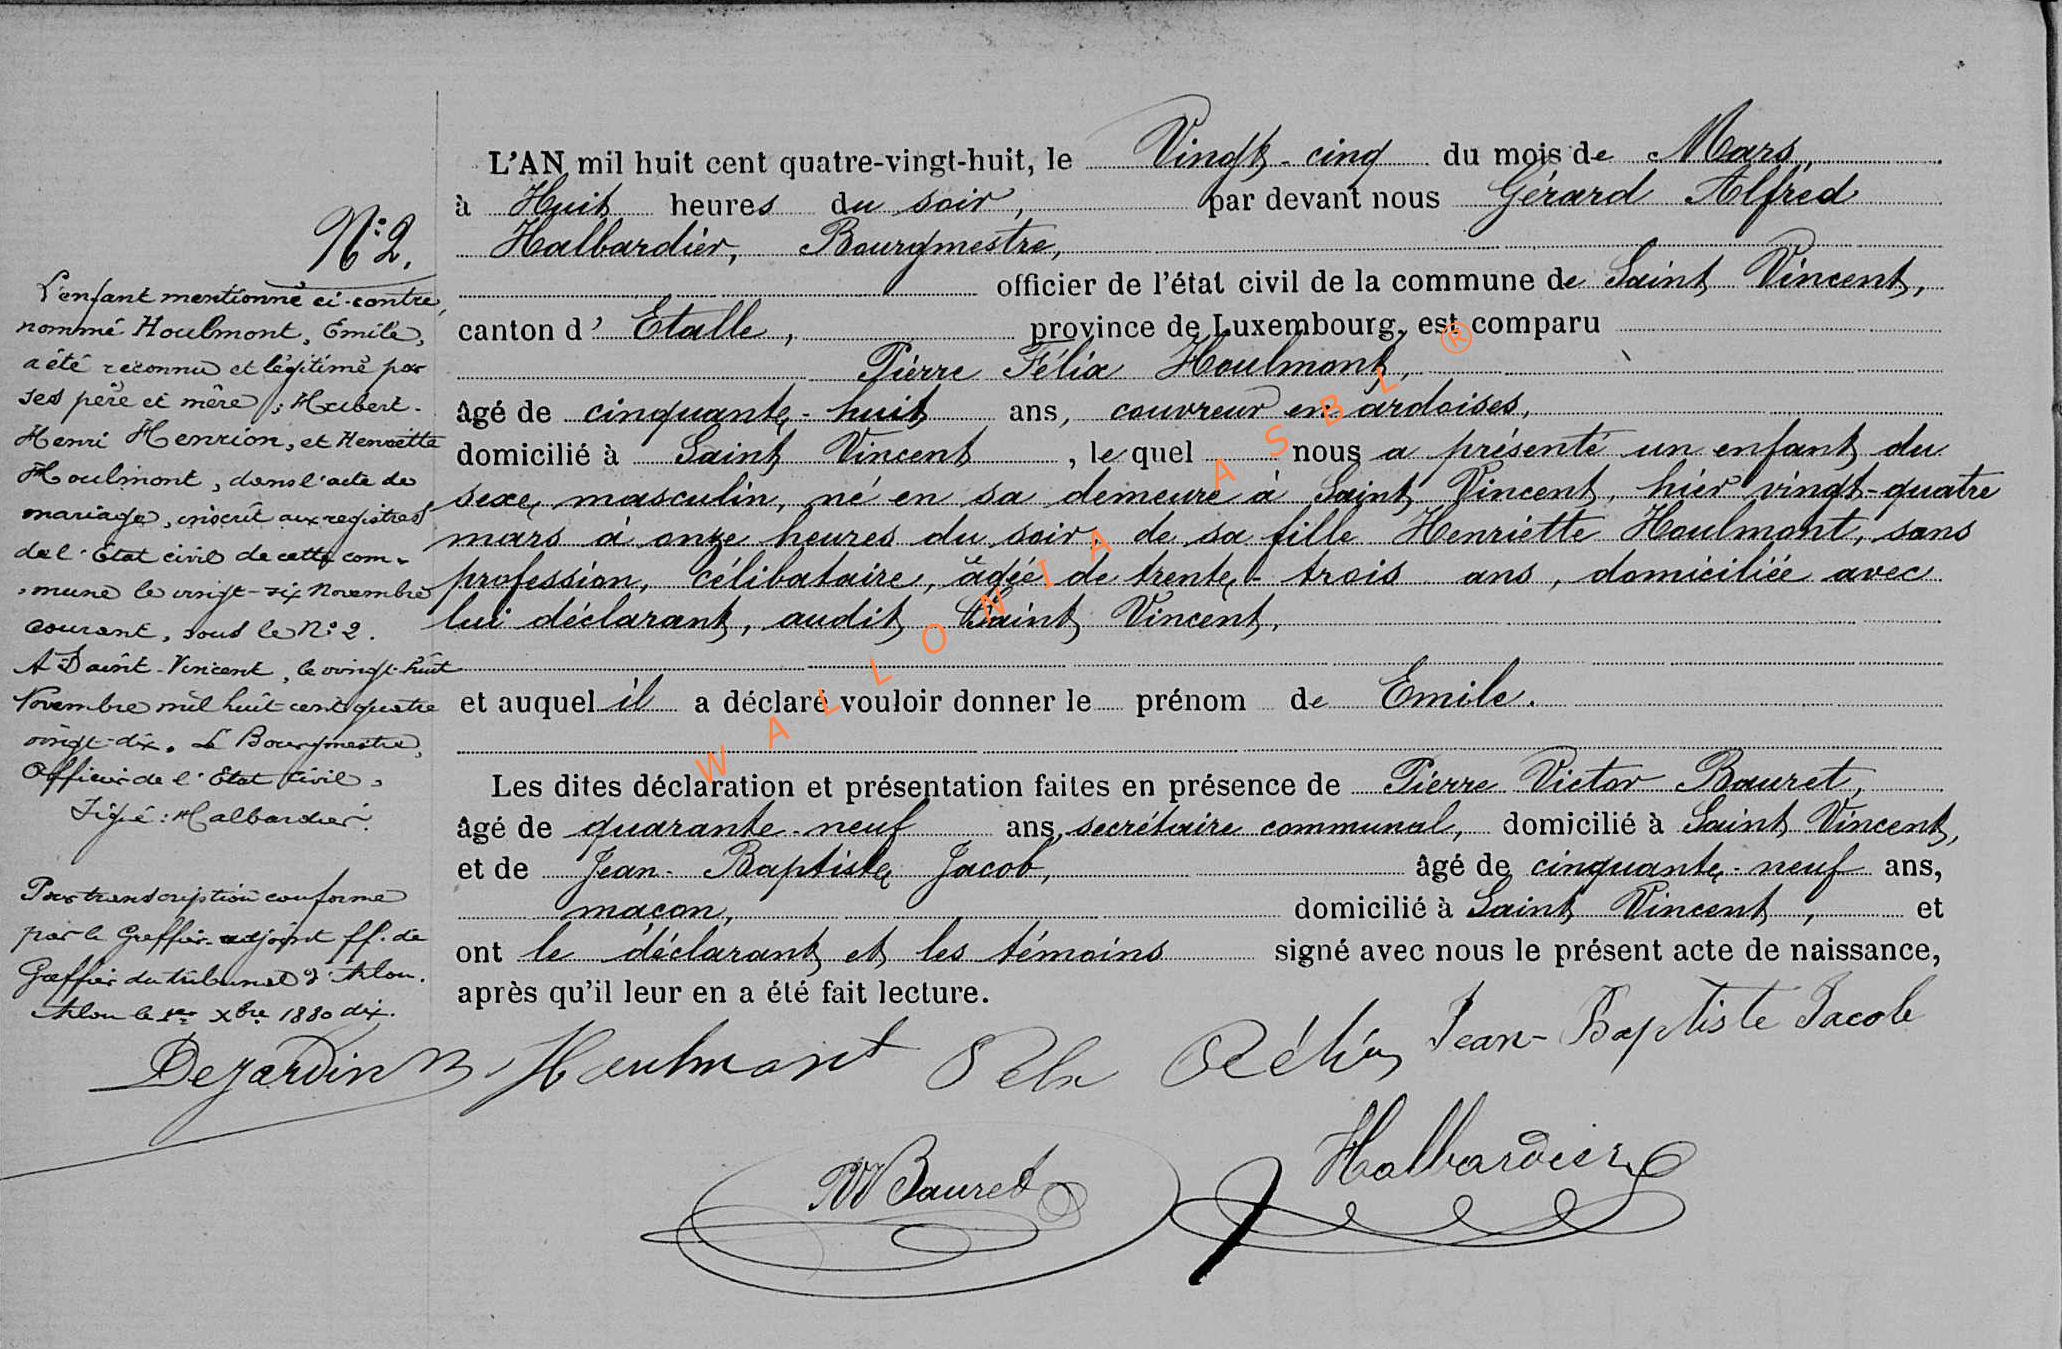 N° 2.
L'enfant mentionné ci-contre,
nommé Houlmont, Emile,
a été reconnu et légitimé par
ses père et mère, Hubert-
Henri Henrion, et Henriette
Houlmont, dans l'acte de
mariage, inscrit aux registres
de l'Etat civil de cette com-
mune le vingt-six Novembre
courant, sous le N° 2.
A Saint-Vincent, le vingt-huit
Novembre mil huit cent quatre
vingt-dix. Le Bourgmestre,
Officier de l'Etat Civil,
Signé : Halbardier.
Pour transcription conforme
par le Greffier-adjoint ff. de
Greffier du tribunal d'Arlon.
Arlon le 1er Xbre 1880 dix.
Dejardin
L'AN mil huit cent quatre-vingt-huit, le Vingt-cinq du mois de Mars,
à Huit heures du soir, par devant nous Gérard Alfred
Halbardier, Bourgmestre,
officier de l'état civil de la commune de Saint Vincent,
canton d' Etalle, province de Luxembourg, est comparu
Pierre Félix Houlmont,
âgé de cinquante-huit ans, couvreur en ardoises,
domicilié à Saint Vincent, le quel nous a présenté un enfant du
sexe masculin, né en sa demeure à Saint Vincent, hier vingt-quatre
mars à onze heures du soir, de sa fille Henriette Houlmont, sans
profession, célibataire, âgée de trente-trois ans, domiciliée avec
lui déclarant, audit Saint Vincent,
et auquel il a déclaré vouloir donner le prénom de Emile.
Les dites déclaration et présentation faites en présence de Pierre Victor Bauret,
âgé de quarante-neuf ans, secrétaire communal, domicilié à Saint Vincent,
et de Jean-Baptiste Jacob, âgé de cinquante-neuf ans,
macon, domicilié à Saint Vincent, et
ont le déclarant et les témoins signé avec nous le présent acte de naissance,
après qu'il leur en a été fait lecture.
Houlmont Jean-Baptiste Jacob
PVBauret Halbardier
WALLONIA ASBL ®